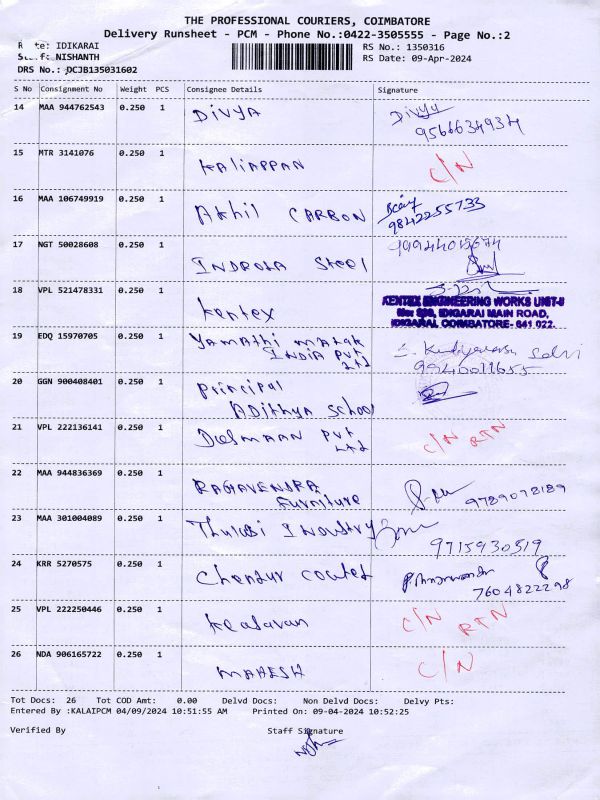 THE PROFESSIONAL COURIERS, COIMBATORE
Delivery Runsheet - PCM - Phone No.:0422-3505555 - Page No.:2
IDIKARAI RS No.: 1350316
NISHANTH RS Date: 09-Apr-2024
DRS No.: DCJB135031602
S No Consignment No Weight PCS Consignee Details Signature
14 MAA 944762543 0.250 1 DIVYA Divya
9566634934
15 MTR 3141076 0.250 1 KALIAPPAN C/N
16 MAA 106749919 0.250 1 Akhil CARBON
9842255733
17 NGT 50028608 0.250 1 INDROLA Steel
18 VPL 521478331 0.250 1 kentex
KENTEX ENGINEERING WORKS UNIT-II
IDIGARAI MAIN ROAD,
IDIGARAI, COIMBATORE- 641 022.
19 EDQ 15970705 0.250 1 Yamathi
INDIA PVT
LTD
9940011655
20 GGN 900408401 0.250 1 principal
ADithya school
21 VPL 222136141 0.250 1 PVT LTD C/N RTN
22 MAA 944836369 0.250 1 RAGHAVENDRA
Furniture 9789078189
23 MAA 301004089 0.250 1 Thulasi INDUSTRY
9715930519
24 KRR 5270575 0.250 1 Chendur
7604822298
25 VPL 222250446 0.250 1 Kesavan C/N RTN
26 NDA 906165722 0.250 1 MAHESH C/N
Tot Docs: 26 Tot COD Amt: 0.00 Delvd Docs: Non Delvd Docs: Delvy Pts:
Entered By :KALAIPCM 04/09/2024 10:51:55 AM Printed On: 09-04-2024 10:52:25
Verified By Staff Signature